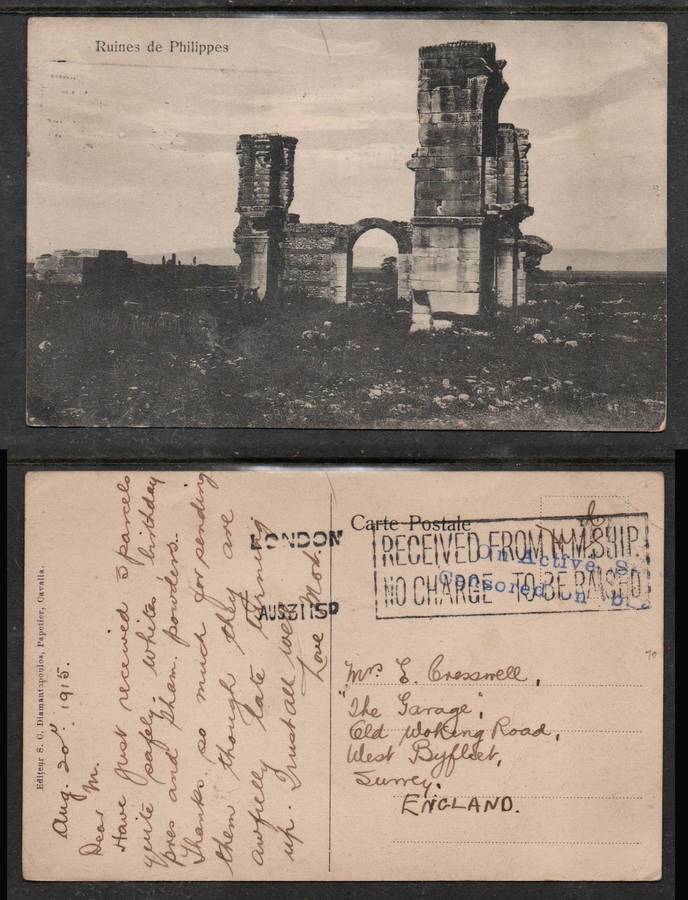 Ruines de Philippes
Carte Postale
LONDON
AUG 31 15
RECEIVED FROM H.M. SHIP.
NO CHARGE TO BE RAISED
On Active S.
Censored on b
Mrs E. Cresswell,
"The Garage",
Old Woking Road,
West Byfleet,
Surrey.
ENGLAND.
70
Editeur S. C. Diamantopoulos, Papetier, Cavalla.
Aug. 20th. 1915.
Dear M.
Have just received 3 parcels
quite safely, whites birthday
pres and Sham. powders.
Thanks so much for sending
them though they are
awfully late turning
up. Trust all well
Love